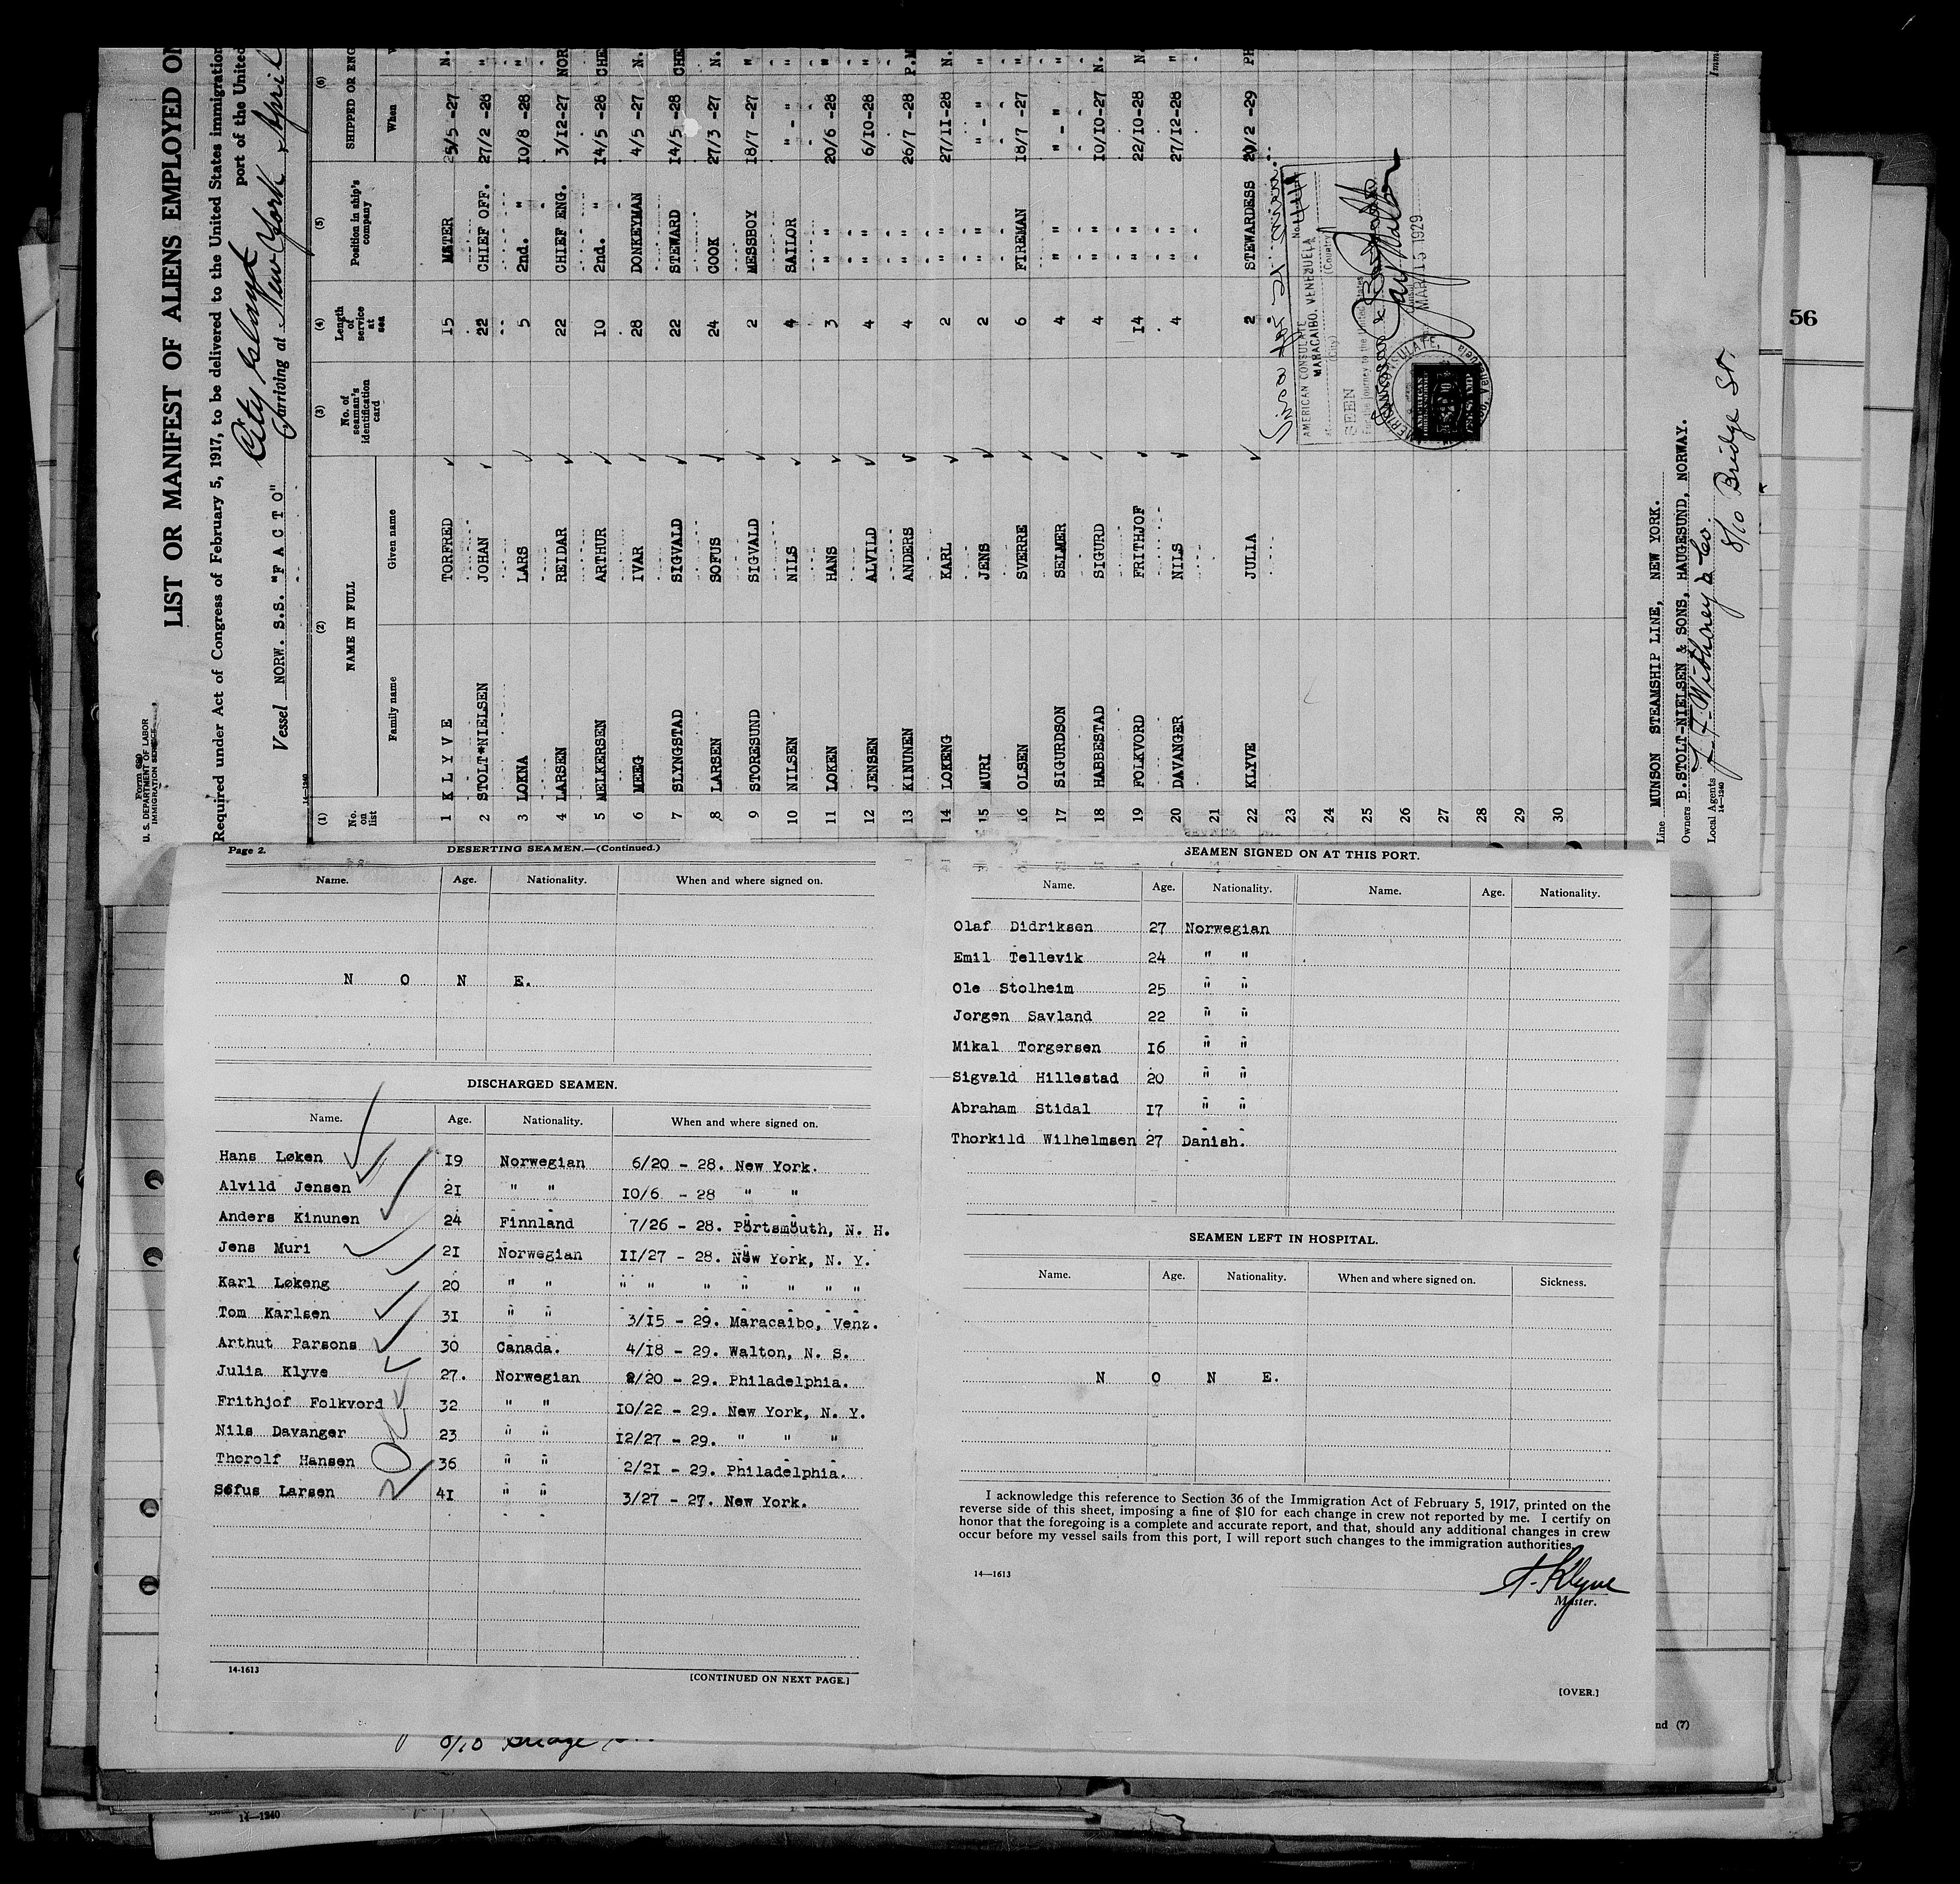 Form 680
U. S. DEPARTMENT OF LABOR
IMMIGRATION SERVICE
LIST OR MANIFEST OF ALIENS EMPLOYED ON
Required under Act of Congress of February 5, 1917, to be delivered to the United States immigration
port of the United
City Island
Vessel NORW. S.S. "F A C T O" arriving at New York, April
14-1240
(1) (2) (3) (4) (5) (6)
No. on list NAME IN FULL No. of seaman's identification card Length of service at sea Position in ship's company SHIPPED OR ENG
Family name Given name When
1 K L Y V E TORFRED 15 MASTER 25/5 -27 N.
2 STOLT*NIELSEN JOHAN 22 CHIEF OFF. 27/2 -28 "
3 LOKNA LARS 5 2nd. " 10/8 -28 "
4 LARSEN REIDAR 22 CHIEF ENG. 3/12-27 NOR
5 MELKERSEN ARTHUR 10 2nd. " 14/5 -28 CHE
6 MEEG IVAR 28 DONKEYMAN 4/5 -27 N.
7 SLYNGSTAD SIGVALD 22 STEWARD 14/5 -28 CHE
8 LARSEN SOFUS 24 COOK 27/3 -27 N.
9 STORESUND SIGVALD 2 MESSBOY 18/7 -27 "
10 NILSEN NILS 4 SAILOR " - " "
11 LOKEN HANS 3 " 20/6 -28 "
12 JENSEN ALVILD 4 " 6/10-28 "
13 KINUNEN ANDERS 4 " 26/7 -28 P.M
14 LOKENG KARL 2 " 27/11-28 N.
15 MURI JENS 2 " " - " "
16 OLSEN SVERRE 6 FIREMAN 18/7 -27 "
17 SIGURDSON SELMER 4 " " - " "
18 HABBESTAD SIGURD 4 " 10/10-27 N.
19 FOLKVORD FRITHJOF 14 " 22/10-28 N.
20 DAVANGER NILS 4 " 27/12-28 "
21
22 KLYVE JULIA 2 STEWARDESS 20/2 -29 PH
23
24
25
26
27
28
29
30
AMERICAN CONSULATE
MARACAIBO, VENEZUELA
(City) (Country)
SEEN
For the journey to the United States
MAR 15 1929
Line MUNSON STEAMSHIP LINE, NEW YORK.
Owners B.STOLT-NIELSEN & SONS, HAUGESUND, NORWAY.
Local Agents
14-1240
8/10 Bridge St.
56
Page 2. DESERTING SEAMEN.—(Continued.)
Name. Age. Nationality. When and where signed on.
N O N E.
DISCHARGED SEAMEN.
Name. Age. Nationality. When and where signed on.
Hans Løken 19 Norwegian 6/20 - 28. New York.
Alvild Jensen 21 " " 10/6 - 28 " "
Anders Kinunen 24 Finnland 7/26 - 28. Portsmouth, N. H.
Jens Muri 21 Norwegian 11/27 - 28. New York, N. Y.
Karl Løkeng 20 " " " " " " " " "
Tom Karlsen 31 " " 3/15 - 29. Maracaibo, Venz.
Arthut Parsons 30 Canada. 4/18 - 29. Walton, N. S.
Julia Klyve 27. Norwegian 2/20 - 29. Philadelphia.
Frithjof Folkvord 32 " " 10/22 - 29. New York, N. Y.
Nils Davanger 23 " " 12/27 - 29. " " "
Thorolf Hansen 36 " " 2/21 - 29. Philadelphia.
Sofus Larsen 41 " " 3/27 - 27. New York.
14-1613
[CONTINUED ON NEXT PAGE.]
SEAMEN SIGNED ON AT THIS PORT.
Name. Age. Nationality. Name. Age. Nationality.
Olaf Didriksen 27 Norwegian
Emil Tellevik 24 " "
Ole Stolheim 25 " "
Jorgen Savland 22 " "
Mikal Torgersen 16 " "
Sigvald Hillestad 20 " "
Abraham Stidal 17 " "
Thorkild Wilhelmsen 27 Danish.
SEAMEN LEFT IN HOSPITAL.
Name. Age. Nationality. When and where signed on. Sickness.
N O N E.
I acknowledge this reference to Section 36 of the Immigration Act of February 5, 1917, printed on the
reverse side of this sheet, imposing a fine of $10 for each change in crew not reported by me. I certify on
honor that the foregoing is a complete and accurate report, and that, should any additional changes in crew
occur before my vessel sails from this port, I will report such changes to the immigration authorities.
14—1613
T. Klyve
Master.
[OVER.]
nd (7)
8/10 Bridge St.
14—1240